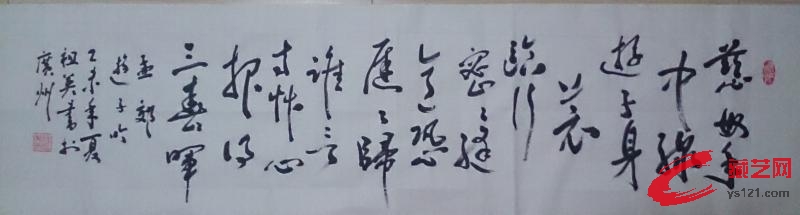 慈母手
中線
遊子身
上衣
臨行
密々縫
意恐
遲々歸
誰言
寸草心
報得
三春暉
孟郊
遊子吟
乙未年夏
祖英書於
廣州
藏艺网
ys121.com